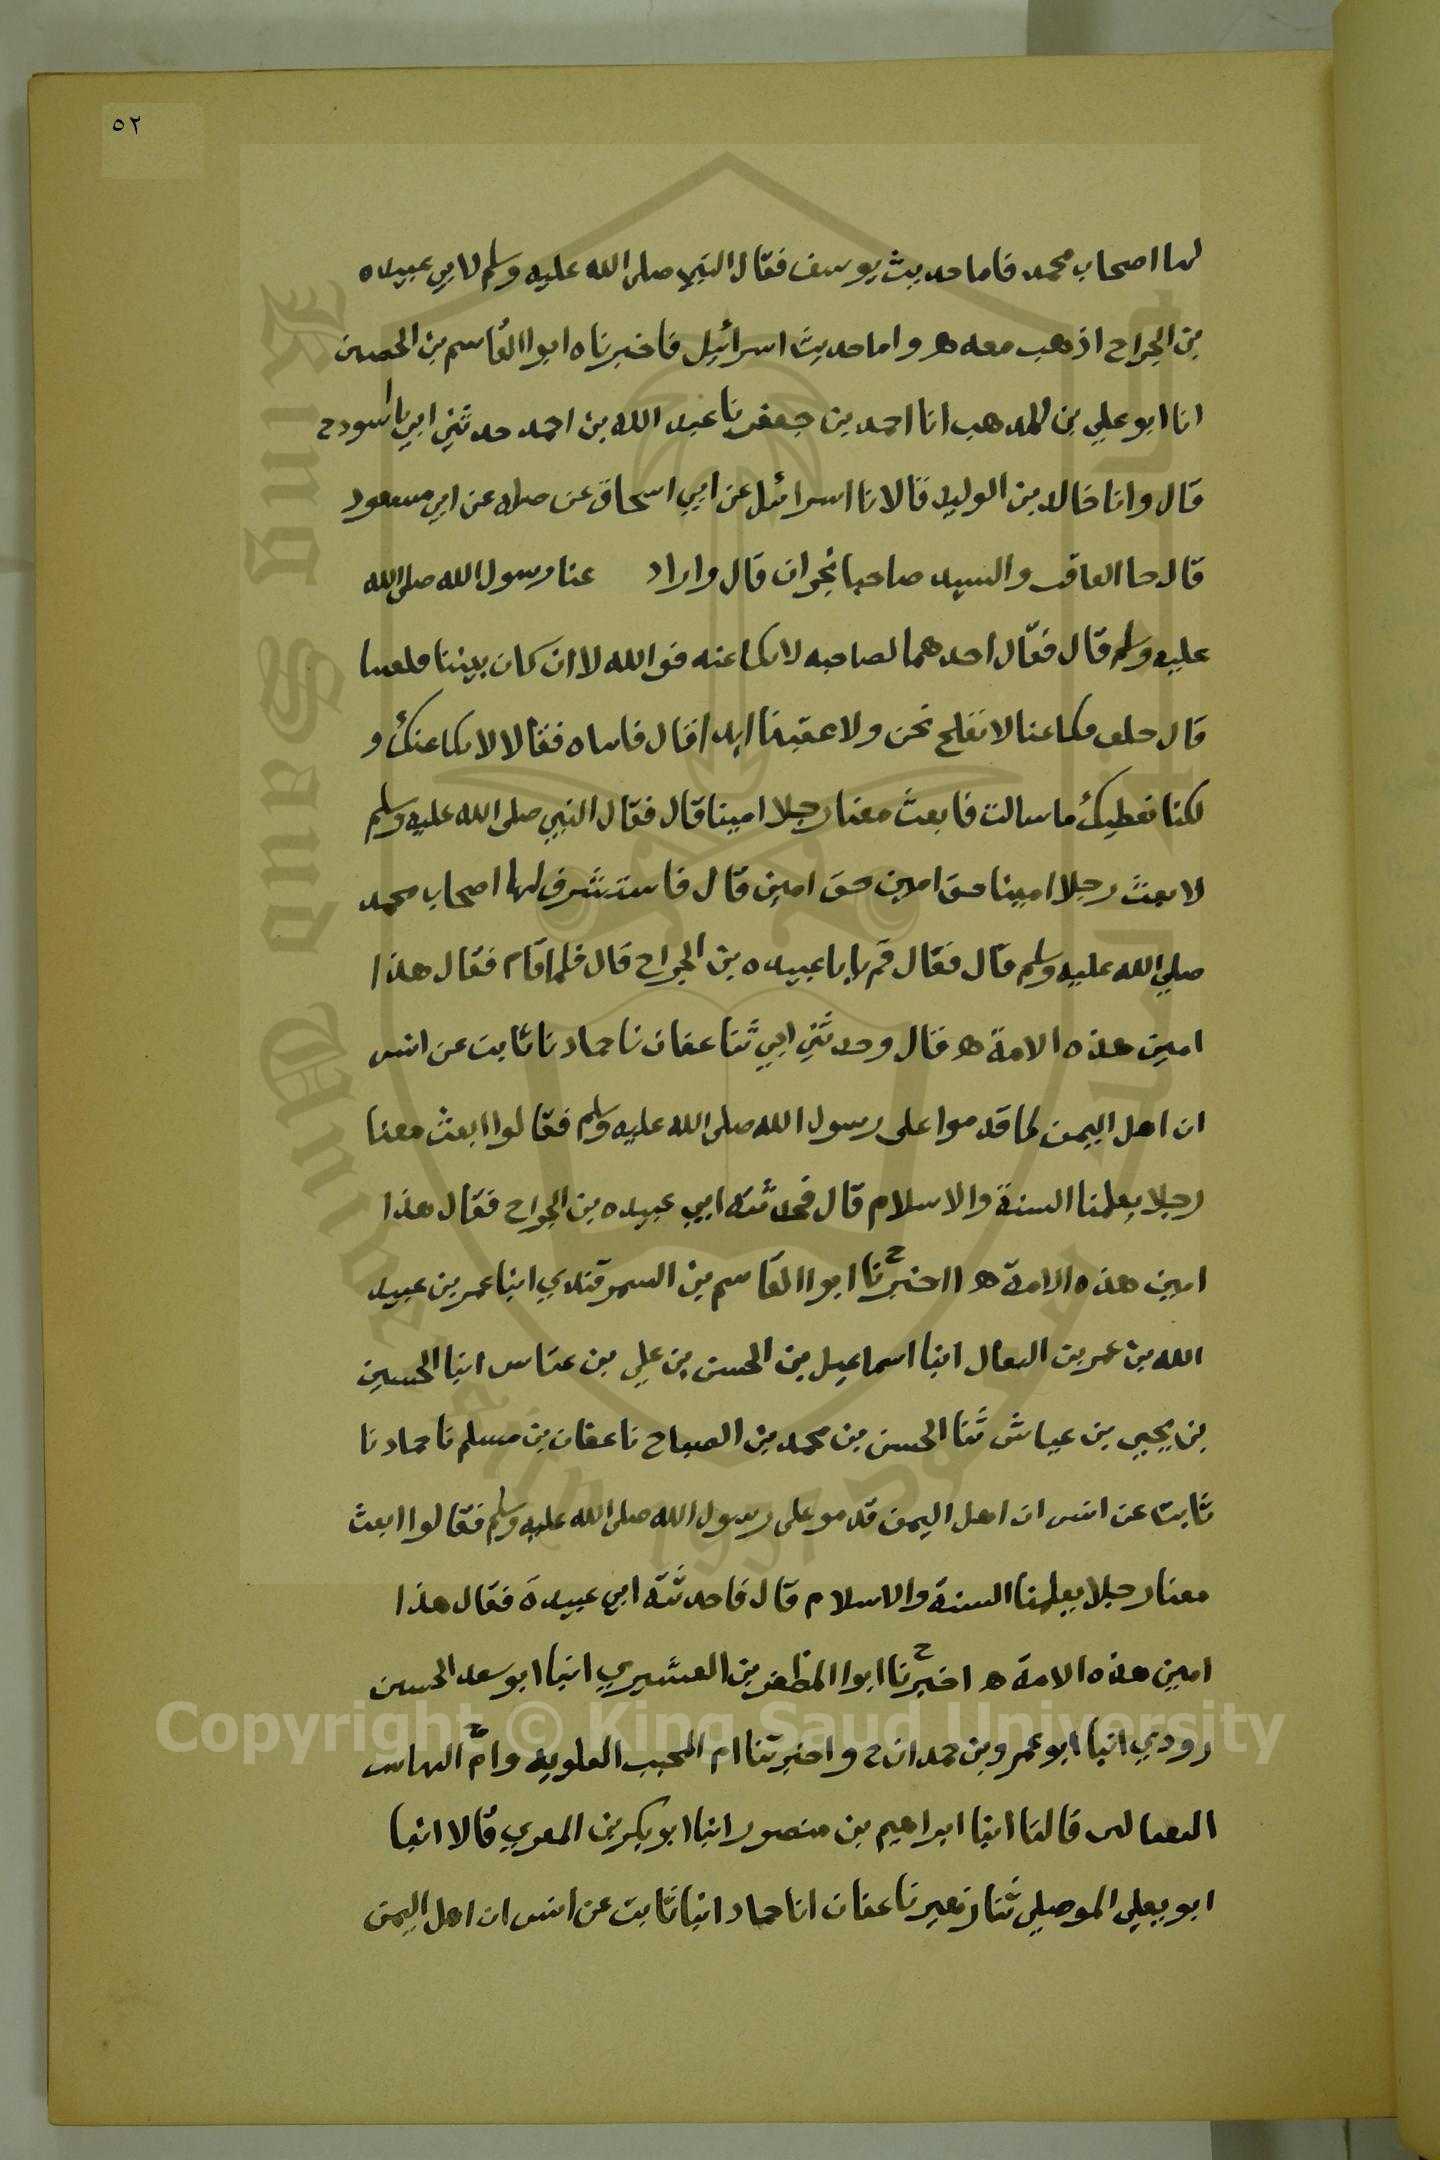 ٥٢
لها اصحاب محمد فاما حديث يوسف فقال النبي صلى الله عليه وسلم لابي عبيده
بن الجراح اذهب معه ه واما حديث اسرائيل فاخبرناه ابوا القاسم بن الحصين
انا ابو علي بن المذهب انا احمد بن جعفر نا عبد الله بن احمد حدثني ابي نا اسود ح
قال وانا خالد بن الوليد قالا نا اسرائيل عن ابي اسحاق عن صله عن ابي مسعود
قال حا العاقب والسيد صاحبا نجران قال واراد عنا رسول الله صلى الله
عليه وسلم قال فقال احدهما لصاحبه لا عنه فوالله لا ان كان بيننا
قال عنا لا نفلح نحن ولا عقبنا ابدا قال فاساه فقالا لا عنك و
لكنا نعطيك ما سالت فابعث معنا رجلا امينا قال فقال النبي صلى الله عليه وسلم
لابعث رجلا امينا حق امين حق امين قال فاستشرف لها اصحاب محمد
صلي الله عليه وسلم قال فقال قم يا ابا عبيده بن الجراح قال فلما قام فقال هذا
امين هذه الامة ه قال وحدثني ابي ثنا عفان نا حماد نا ثابت عن انس
ان اهل اليمن لما قدموا على رسول الله صلى الله عليه وسلم فقالوا ابعث معنا
رجلا يعلمنا السنة والاسلام قال فحدثته ابي عبيده بن الجراح فقال هذا
امين هذه الامة ه ااخبرنا ح ابوا القاسم بن السمرقندي انبا عمر بن عبيد
الله بن عمر بن البقال انبا اسماعيل بن الحسن بن علي بن عتاس انبا الحسين
بن يحيي بن عياش ثنا الحسن بن محمد بن الصباح نا عفان بن مسلم نا حماد نا
ثابت عن انس ان اهل اليمن قدمو على رسول الله صلى الله عليه وسلم فقالوا ابعث
معنا رجلا يعلمنا السنة والاسلام قال فاحدثته ابي عبيدة فقال هذا
امين هذه الامة ه اخبرنا ح ابوا المظفر بن القشيري انبا ابو سعد الحسن
رودي انبا ابو عمرو بن حمدان ح واخبرتنا ام المجتبي العلويه وام البهاس
قالتا انبا ابراهيم بن منصور انبا ابو بكر بن المقري قالا انبا
ابو يعلي الموصلي ثنا زهير نا عفان انا حماد انبا ثابت عن انس ان اهل اليمن
Copyright © King Saud University